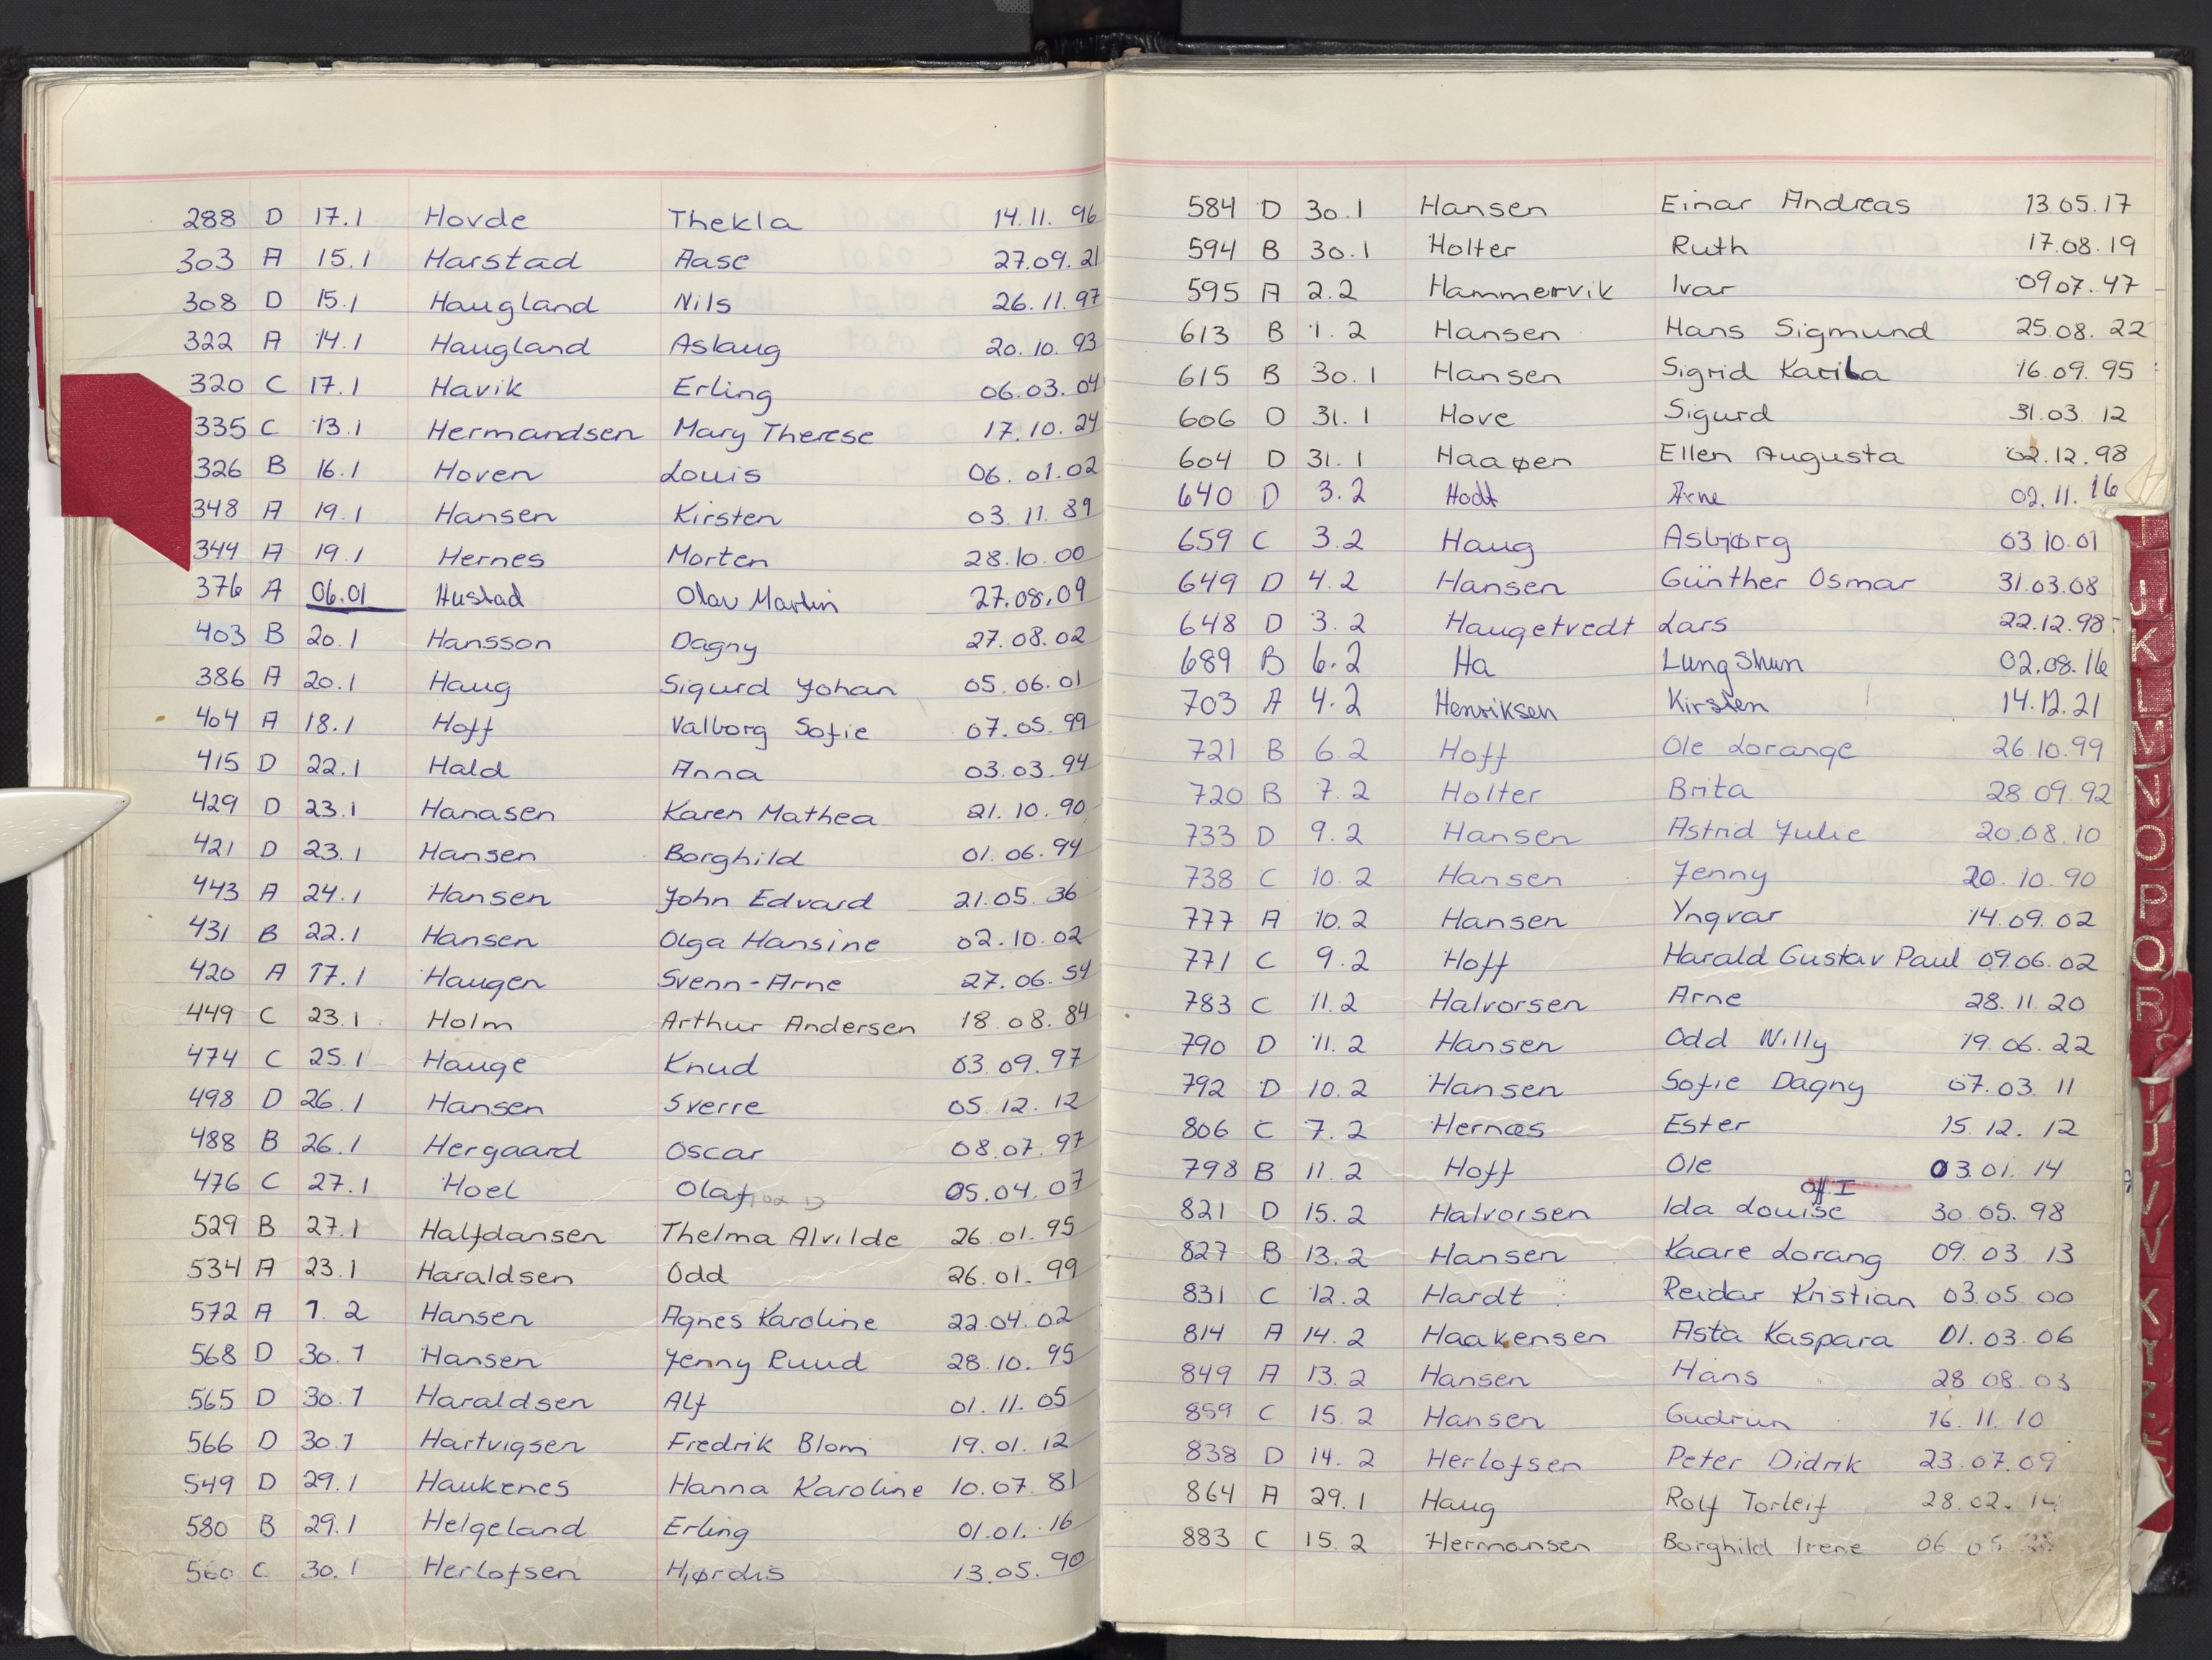 288 D 17.1 Hovde Thekla 14.11.96
303 A 15.1 Harstad Aase 27.09.21
308 D 15.1 Haugland Nils 26.11.97
322 A 14.1 Haugland Aslaug 20.10.93
320 C 17.1 Havik Erling 06.03.04
335 C 13.1 Hermandsen Mary Therese 17.10.24
326 B 16.1 Hoven Louis 06.01.02
348 A 19.1 Hansen Kirsten 03.11.89
344 A 19.1 Hernes Morten 28.10.00
376 A 06.01 Hustad Olav Martin 27.08.09
403 B 20.1 Hansson Dagny 27.08.02
386 A 20.1 Haug Sigurd Johan 05.06.01
404 A 18.1 Hoff Valborg Sofie 07.05.99
415 D 22.1 Hald Anna 03.03.94
429 D 23.1 Hanasen Karen Mathea 21.10.90
421 D 23.1 Hansen Borghild 01.06.94
443 A 24.1 Hansen John Edvard 21.05.36
431 B 22.1 Hansen Olga Hansine 02.10.02
420 A 17.1 Haugen Svenn-Arne 27.06.54
449 C 23.1 Holm Arthur Andersen 18.08.84
474 C 25.1 Hauge Knud 03.09.97
498 D 26.1 Hansen Sverre 05.12.12
488 B 26.1 Hergaard Oscar 08.07.97
476 C 27.1 Hoel Olaf 05.04.07
529 B 27.1 Halfdansen Thelma Alvilde 26.01.95
534 A 23.1 Haraldsen Odd 26.01.99
572 A 1.2 Hansen Agnes Karoline 22.04.02
568 D 30.1 Hansen Jenny Ruud 28.10.95
565 D 30.1 Haraldsen Alf 01.11.05
566 D 30.1 Hartvigsen Fredrik Blom 19.01.12
549 D 29.1 Haukenes Hanna Karoline 10.07.81
580 B 29.1 Helgeland Erling 01.01.16
560 C 30.1 Herlofsen Hjørdis 13.05.90
584 D 30.1 Hansen Einar Andreas 13.05.17
594 B 30.1 Holter Ruth 17.08.19
595 A 2.2 Hammervik Ivar 09.07.47
613 B 1.2 Hansen Hans Sigmund 25.08.22
615 B 30.1 Hansen Sigrid 16.09.95
606 D 31.1 Hove Sigurd 31.03.12
604 D 31.1 Ellen Augusta 02.12.98
640 D 3.2 Hodt Arne 02.11.16
659 C 3.2 Haug Asbjørg 03.10.01
649 D 4.2 Hansen Günther Osmar 31.03.08
648 D 3.2 Haugetvedt Lars 22.12.98
689 B 6.2 Ha Lung Shun 02.08.16
703 A 4.2 Henriksen Kirsten 14.12.21
721 B 6.2 Hoff Ole Lorange 26.10.99
720 B 7.2 Holter Brita 28.09.92
733 D 9.2 Hansen Astrid Julie 20.08.10
738 C 10.2 Hansen Jenny 20.10.90
777 A 10.2 Hansen Yngvar 14.09.02
771 C 9.2 Hoff Harald Gustav Paul 09.06.02
783 C 11.2 Halvorsen Arne 28.11.20
790 D 11.2 Hansen Odd Willy 19.06.22
792 D 10.2 Hansen Sofie Dagny 07.03.11
806 C 7.2 Hernæs Ester 15.12.12
798 B 11.2 Hoff Ole 03.01.14
off. I
821 D 15.2 Halvorsen Ida Louise 30.05.98
827 B 13.2 Hansen Kaare Lorang 09.03.13
831 C 12.2 Hardt Reidar Kristian 03.05.00
814 A 14.2 Haakensen Asta Kaspara 01.03.06
849 A 13.2 Hansen Hans 28.08.03
859 C 15.2 Hansen Gudrun 16.11.10
838 D 14.2 Herlofsen Peter Didrik 23.07.09
864 A 29.1 Haug Rolf Torleif 28.02.14
883 C 15.2 Hermansen Borghild Irene 06.05
I
J
K
L
M
N
O
P
Q
R
S
T
U
V